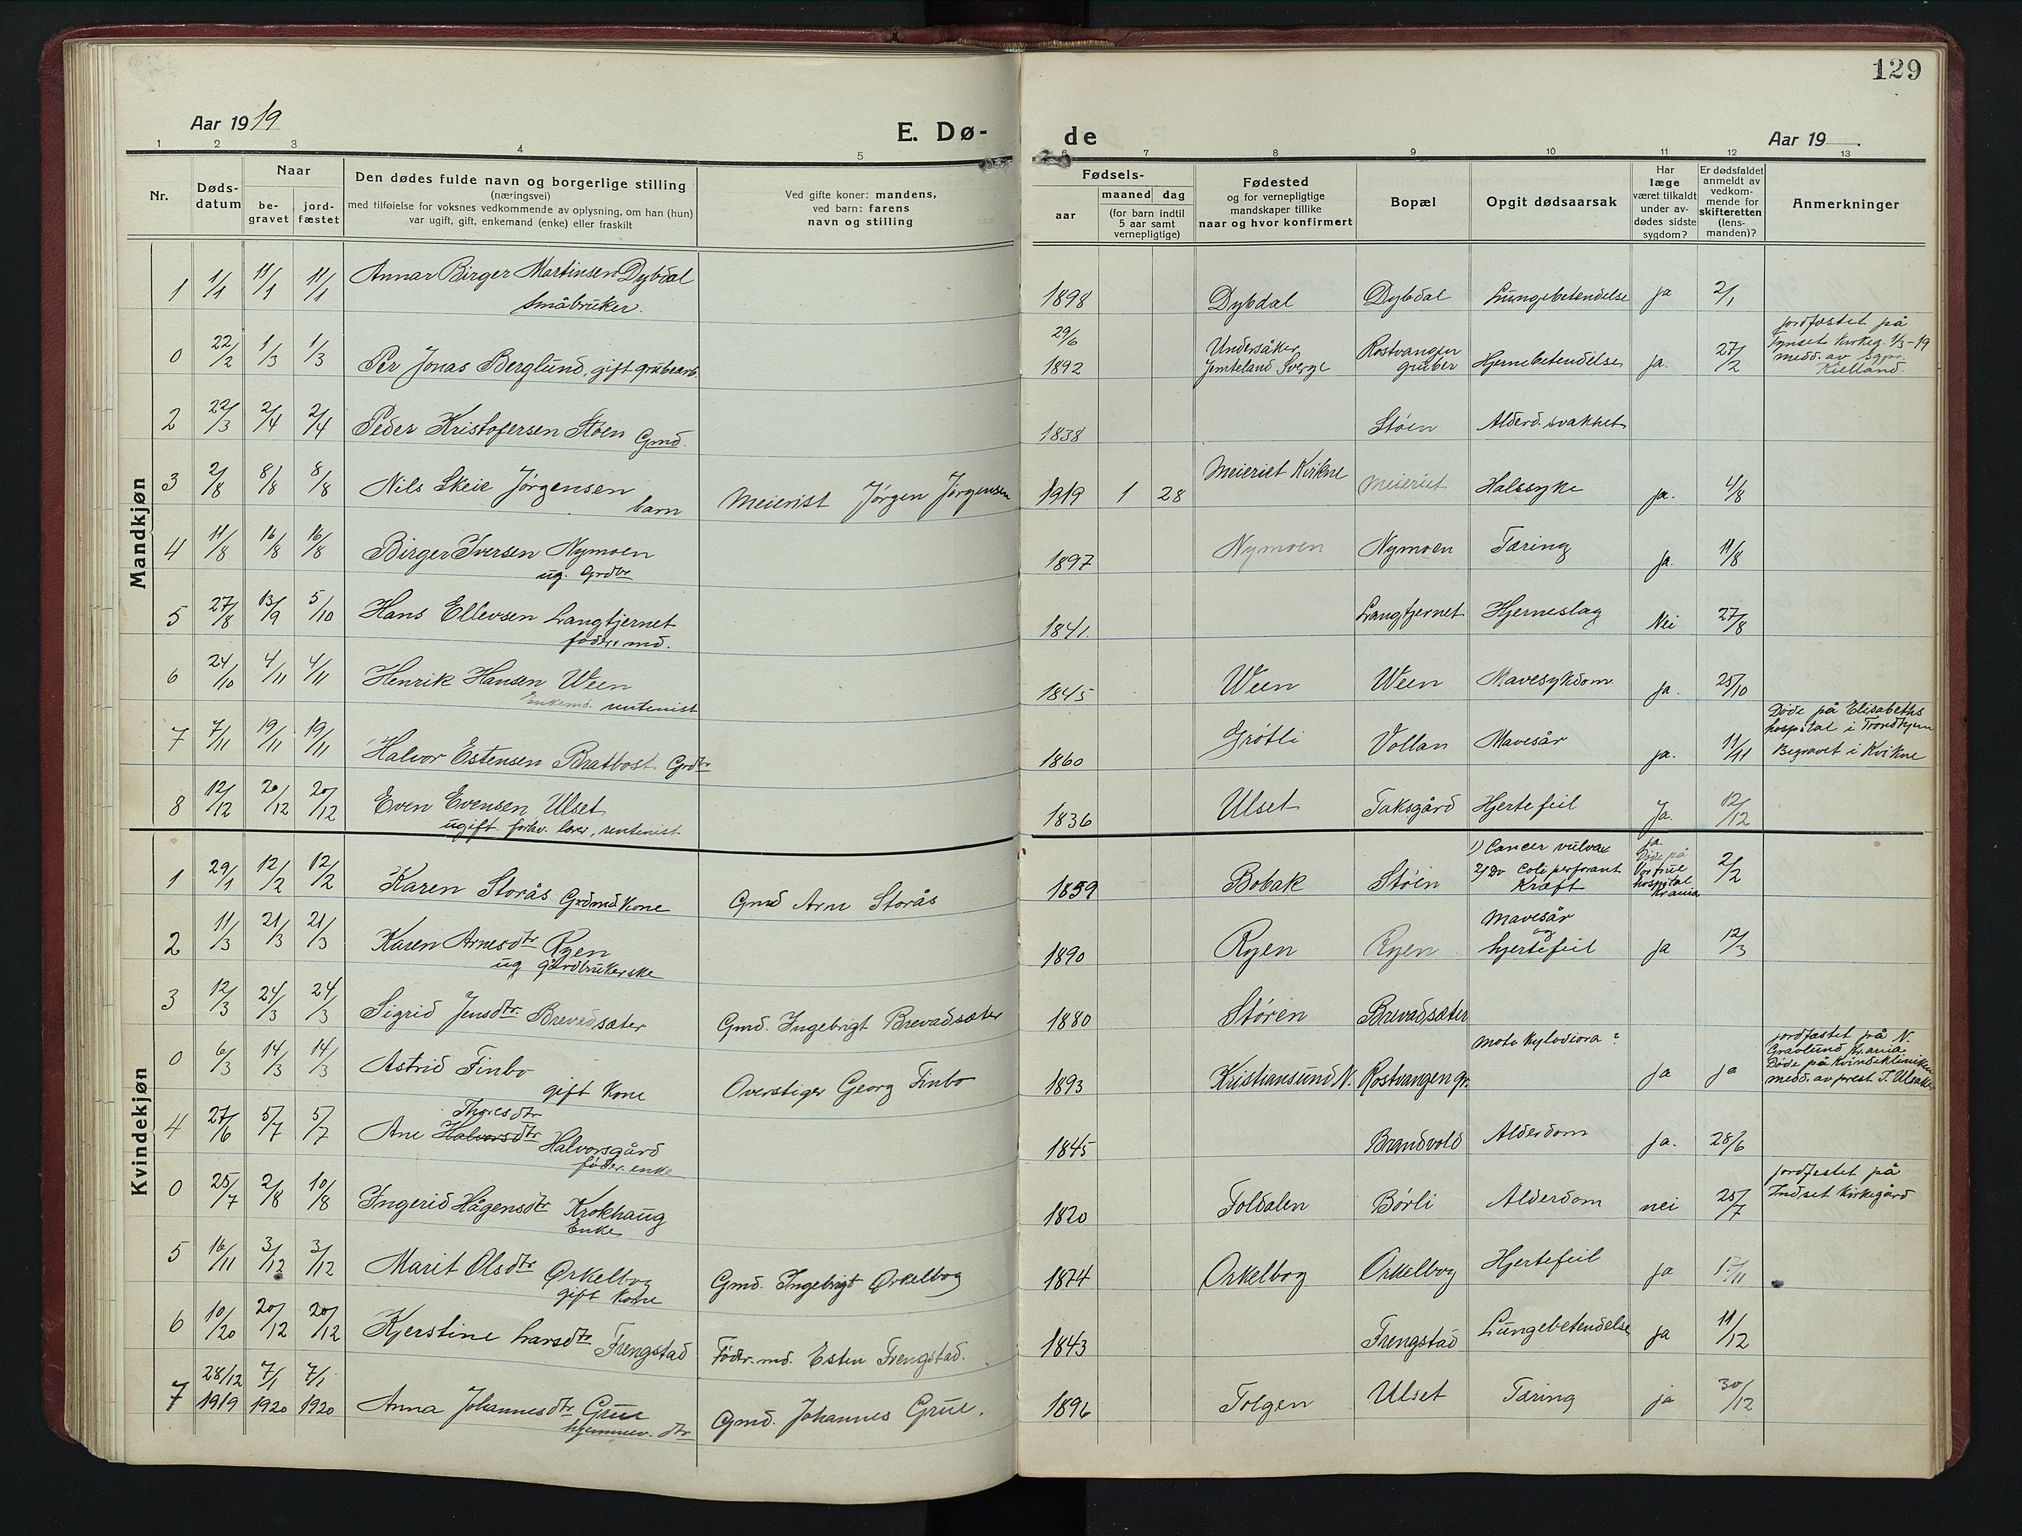 129
Aar 1919
E. Dø-
de
Aar 19
1 2 3 4 5 6 7 8 9 10 11 12 13
Nr.
Døds-
datum
Naar
be-
gravet
jord-
fæstet
Den dødes fulde navn og borgerlige stilling
(næringsvei)
med tilføielse for voksnes vedkommende av oplysning, om han (hun)
var ugift, gift, enkemand (enke) eller fraskilt
Ved gifte koner: mandens,
ved barn: farens
navn og stilling
Fødsels-
aar
maaned
dag
(for barn indtil
5 aar samt
vernepligtige)
Fødested
og for vernepligtige
mandskaper tillike
naar og hvor konfirmert
Bopæl
Opgit dødsaarsak
Har
læge
været tilkaldt
under av-
dødes sidste
sygdom?
Er dødsfaldet
anmeldt av
vedkom-
mende for
skifteretten
(lens-
manden)?
Anmerkninger
Mandkjøn
1 1/1 11/1 11/1 Annar Birger Martinsen Dybdal 1898 Dybdal Dybdal Lungebetendelse ja 2/1
småbruker.
0 22/2 1/3 1/3 Per Jonas Berglund, gift grubearb. 29/6 1892 Undersåker Jemteland Sverge Rostvangen gruber Hjernebetendelse ja. 27/2 jordfæstet på
Tynset kirkeg. 1/3-19
medd. av sgpr.
Kielland
2 22/3 2/4 2/4 Peder Kristofersen Støen Gmd. 1838 Støen Alderd. svakhet
3 2/8 8/8 8/8 Nils Skeie Jørgensen Meierist Jørgen Jørgensen 1919 1 28 Meieriet Kvikne Meieriet Halssyke ja. 4/8
barn
4 11/8 16/8 16/8 Birger Iversen Nymoen 1897 Nymoen Nymoen Tæring ja. 11/8
ug. Grdbr
5 27/8 13/9 5/10 Hans Ellevsen Langtjernet 1841. Langtjernet Hjerneslag Nei 27/8
føder. md.
6 24/10 4/11 4/11 Henrik Hansen Ween 1845 Ween Ween Mavesykdom ja. 25/10
Enkemd. rentenist
7 7/11 19/11 19/11 Halvor Estensen Bratbost Grdbr 1860 Grøtli Vollan Mavesår ja. 11/11 Døde på Elisabeths
hospital i Trondhjem
Begravet i Kvikne
8 12/12 20/12 20/12 Even Evensen Ulset 1836 Ulset Taksgård Hjertefeil Ja. 12/12
ugift. forhv. lærer, rentenist
Kvindekjøn
1 29/1 12/2 12/2 Karen Storås Grdmd kone Gmd Arne Storås 1859 Bobak Støen 1) Cancer vulvae
2) Do Coli perforant
Kræft ja
Døde på
Vor frue
hospital
Krania 2/2
2 11/3 21/3 21/3 Karen Arnesdtr Ryen 1890 Ryen Ryen Mavesår
og
hjertefeil ja 12/3
ug gårdbrukerske
3 12/3 24/3 24/3 Sigrid Jensdtr. Brevadsæter Gmd. Ingebrigt Brevadsæter 1880 Støren Brevadsæter
0 6/3 14/3 14/3 Astrid Finbo Overstiger Georg Finbo 1893 Kristiansund N. Rostvangen gr. ja ja jordfæstet på N.
Gravlund Kr.ania
Døde på Kvindeklinikken
medd. av prest T. Ulsaker
gift kone
4 27/6 5/7 5/7 Ane Halvorsdtr Thoresdtr Halvorsgård 1845 Brandvold Alderdom ja. 28/6
føder. enke
0 25/7 2/8 10/8 Ingerid Hågensdtr Krokhaug 1820 Foldalen Børli Alderdom nei 25/7 jordfestet på
Indset kirkegård
Enke
5 16/11 3/12 3/12 Marit Olsdtr Orkelbog Gmd. Ingebrigt Orkelbog 1874 Orkelbog Orkelbog Hjertefeil ja
gift kone
6 10/20 20/12 20/12 Kjerstine Larsdtr Frengstad Føder. md. Esten Frengstad. 1843 Frengstad Lungebetendelse ja 11/12
7 28/12 1919 7/1 1920 7/1 1920 Anna Johannesdtr Grue Gmd. Johannes Grue. 1896 Tolgen Ulset Tæring ja 30/12
hjemmev. dtr